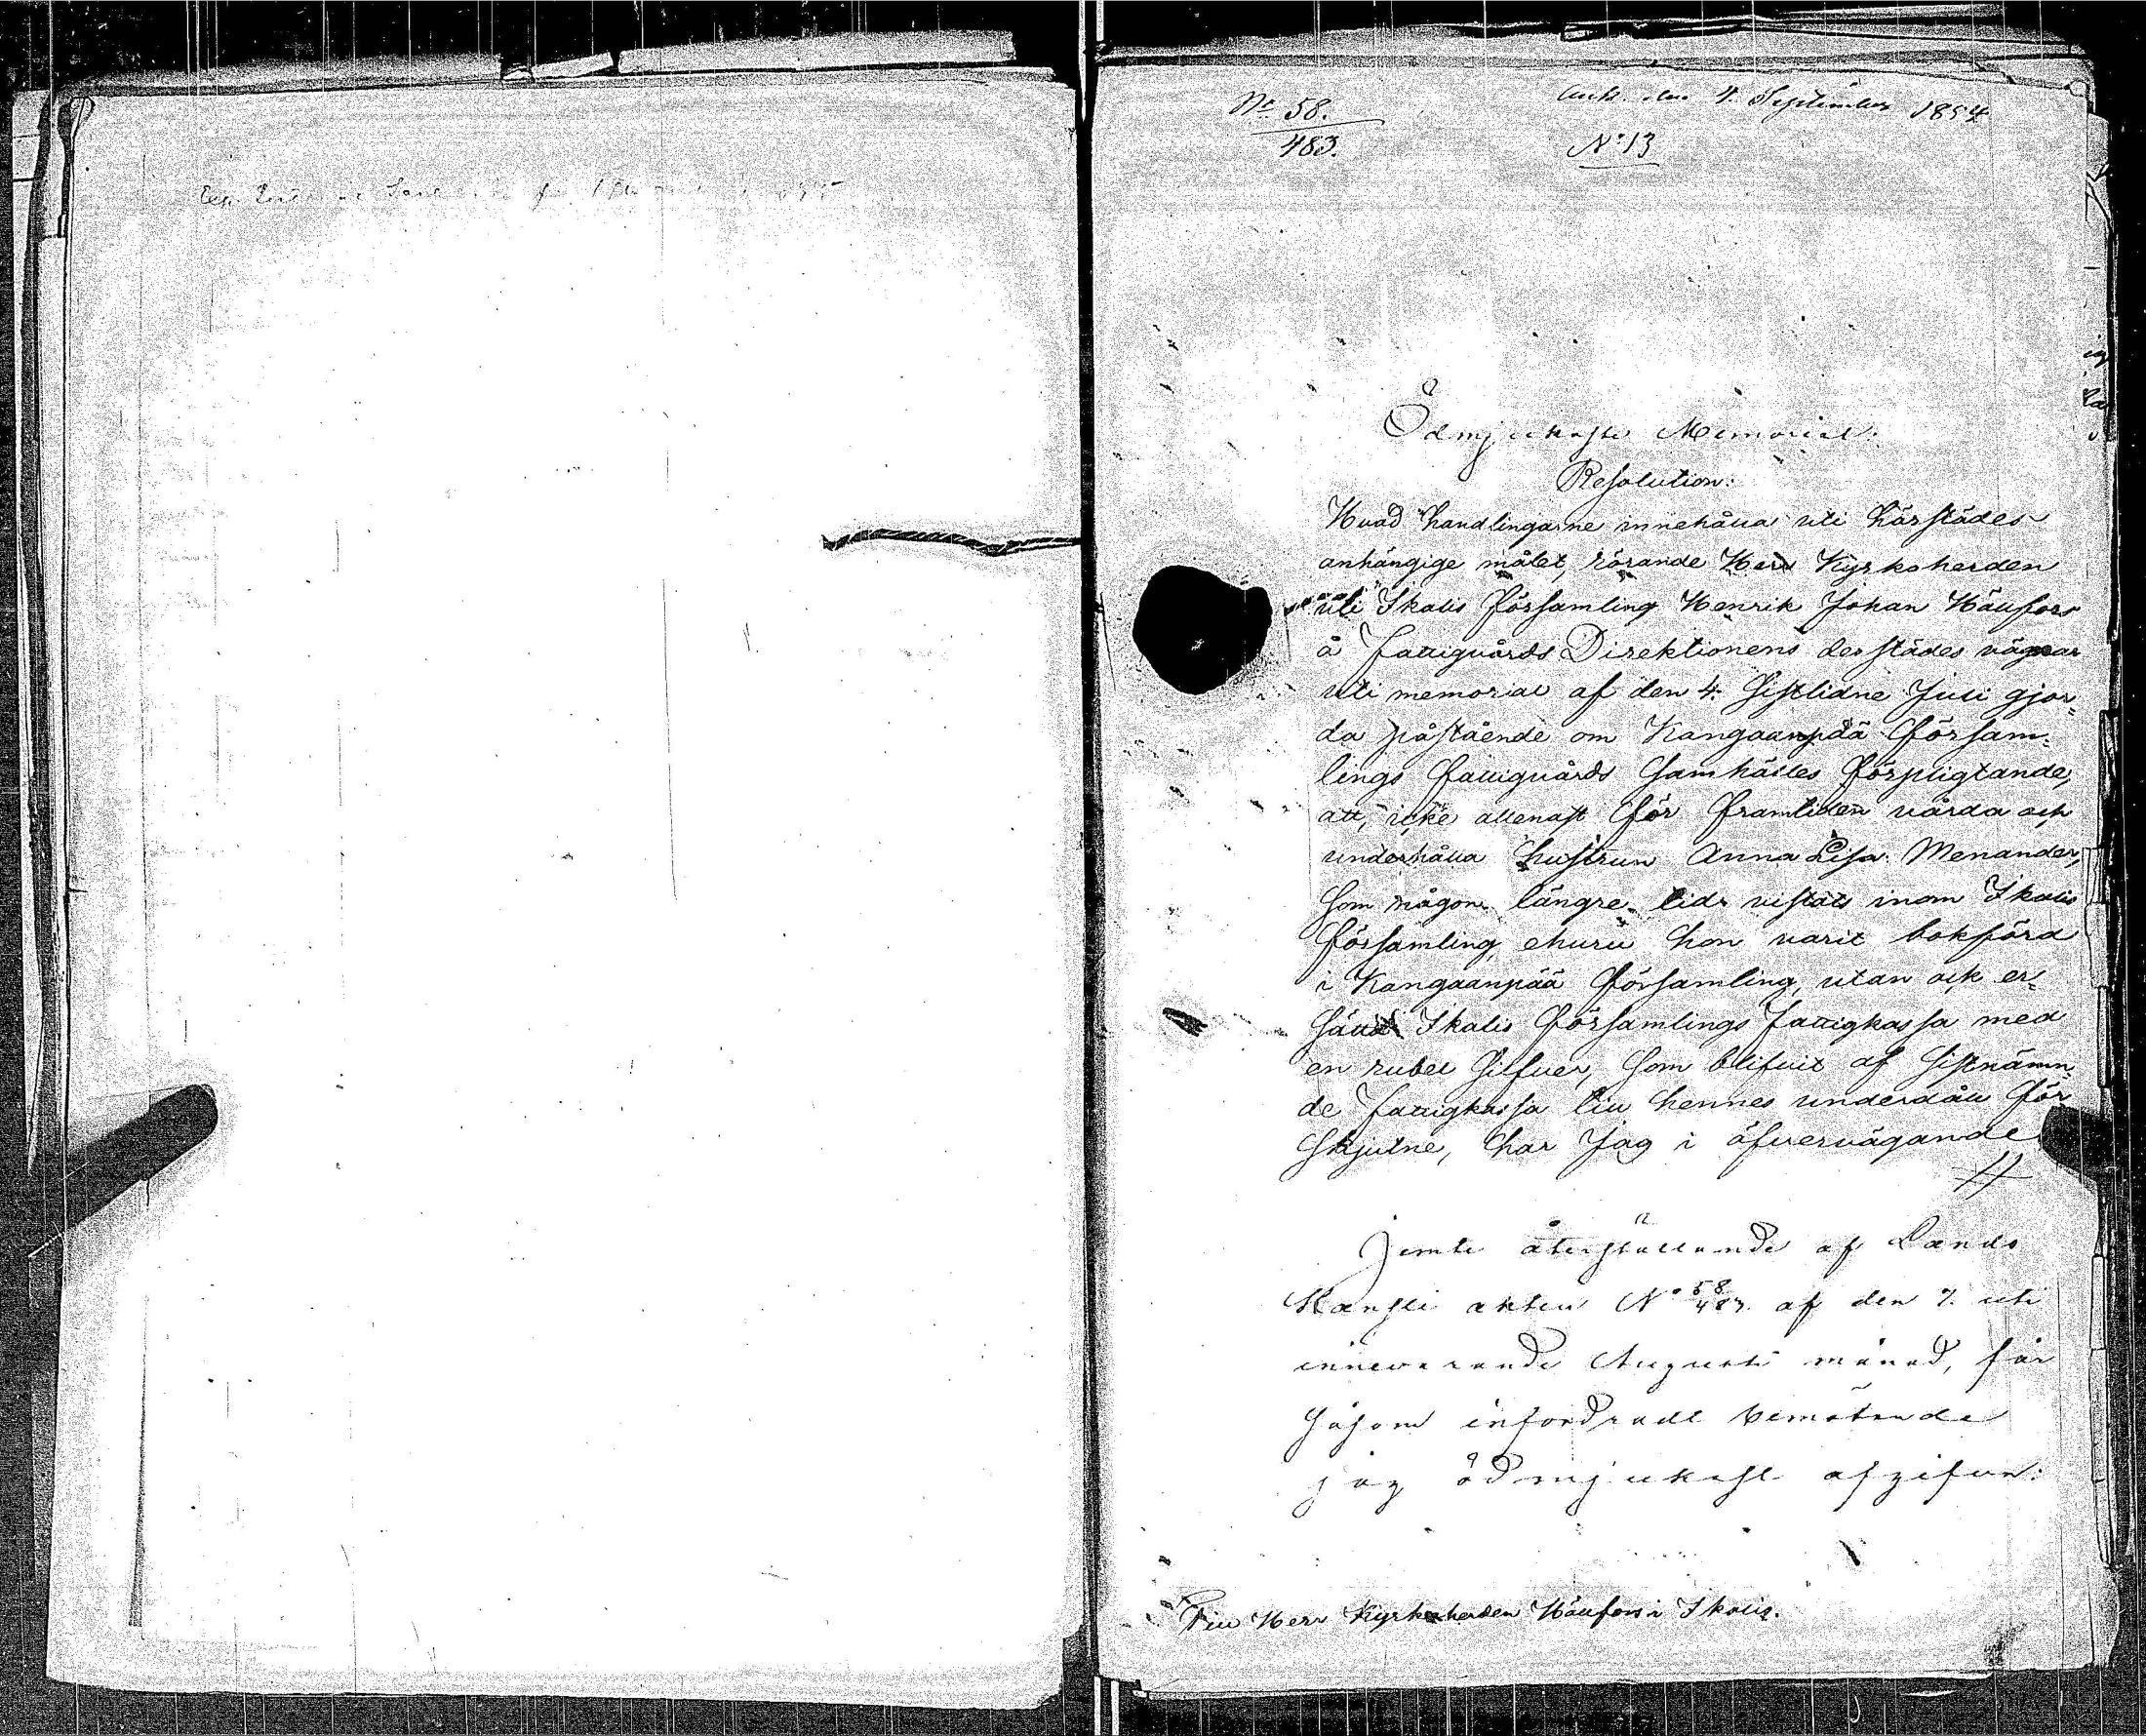 No 58.
483.
den 4. September 1854
No 13
Ödmjukaste Memorial.
Resolution:
Hvad handlingarne innehålla uti härstädes
anhängige målet, rörande Herr Kyrkoherden
uti Ikalis församling Henrik Johan Hällfors
å Fattigvårds Direktionens derstädes vägnar
uti memorial af den 4. sistlidne Juli gjor-
da påstående om Kangaanpää försam-
lings fattigvårds samhälles förpligtande,
att, icke allenast för framtiden vårda och
underhålla hustrun Anna Lisa Menander,
som någon längre tid vistats inom Ikalis
församling, ehuru hon varit bokförd
i Kangaanpää församling, utan ock er-
sätta Ikalis församlings fattigkassa med
en rubel silfver, som blifvit af sistnämn-
de fattigkassa till hennes underhåll för-
skjutne, har Jag i öfvervägande
Jemte återställande af Lands
Kansli akten No 58/483 af den 7. uti
innevarande Augusti månad, får
såsom infordradt bemötande
jag ödmjukast afgifva:
Till Herr Kyrkoherden Hällfors i Ikalis.